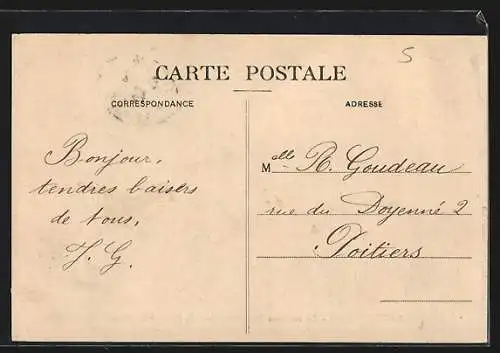 5
CARTE POSTALE
CORRESPONDANCE
ADRESSE
Bonjour,
tendres baisers
de tous,
J. G.
Melle R. Goudeau
rue du Doyenné 2
Poitiers